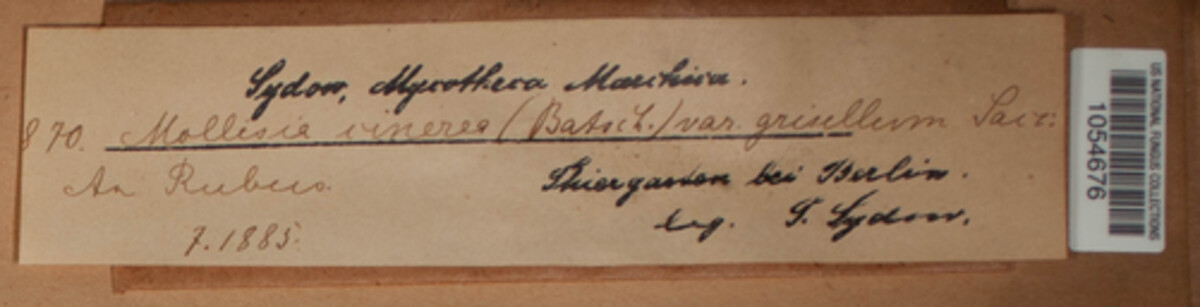 Sydow, Mycotheca Marchica.
870. Mollisia cinerea (Batsch.) var. grisellum Sacc.
An Rubus.
Thiergarten bei Berlin.
7.1885.
leg. P. Sydow.
US NATIONAL FUNGUS COLLECTIONS
1054676